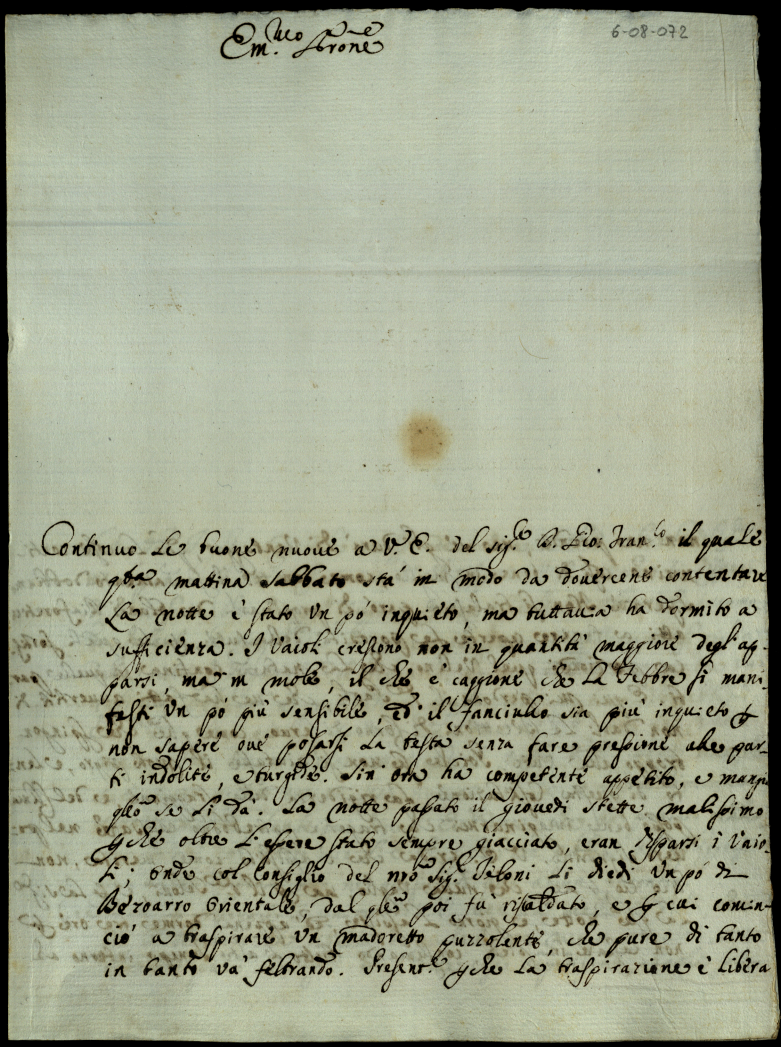 6-08-072
Em.mo Prone
Continuo le buone nuove a V. E. del sig.re D. Gio: Fran.co il quale
q.sta mattina sabbato stà in modo da dovercene contentare
La notte è stato un pó inquieto, ma tuttavia ha dormito a
sufficienza. I vaioli crescono non in quantità maggiore degl'ap-
parsi, ma in mole, il che è caggione che la febbre si mani-
festi un pó più sensibile, ed il fanciullo sia più inquieto p
non sapere ove posarsi la testa senza fare pressione alle par-
ti indolite, e turgide. Sin ora ha competente appetito, e mangia
qllo se li dà. La notte passato il giovedi stette malissimo
pche oltre l'essere stato sempre giacciato, eran risparsi i vaio-
li; onde col consiglio del nro sig.r Tiloni li diedi un pó di
Bezoarro orientale, dal qle poi fù riscaldato, e p cui comin-
ciò a traspirare un madoretto puzzolente, che pure di tanto
in tanto và feltrando. Present.e pche la traspirazione è libera